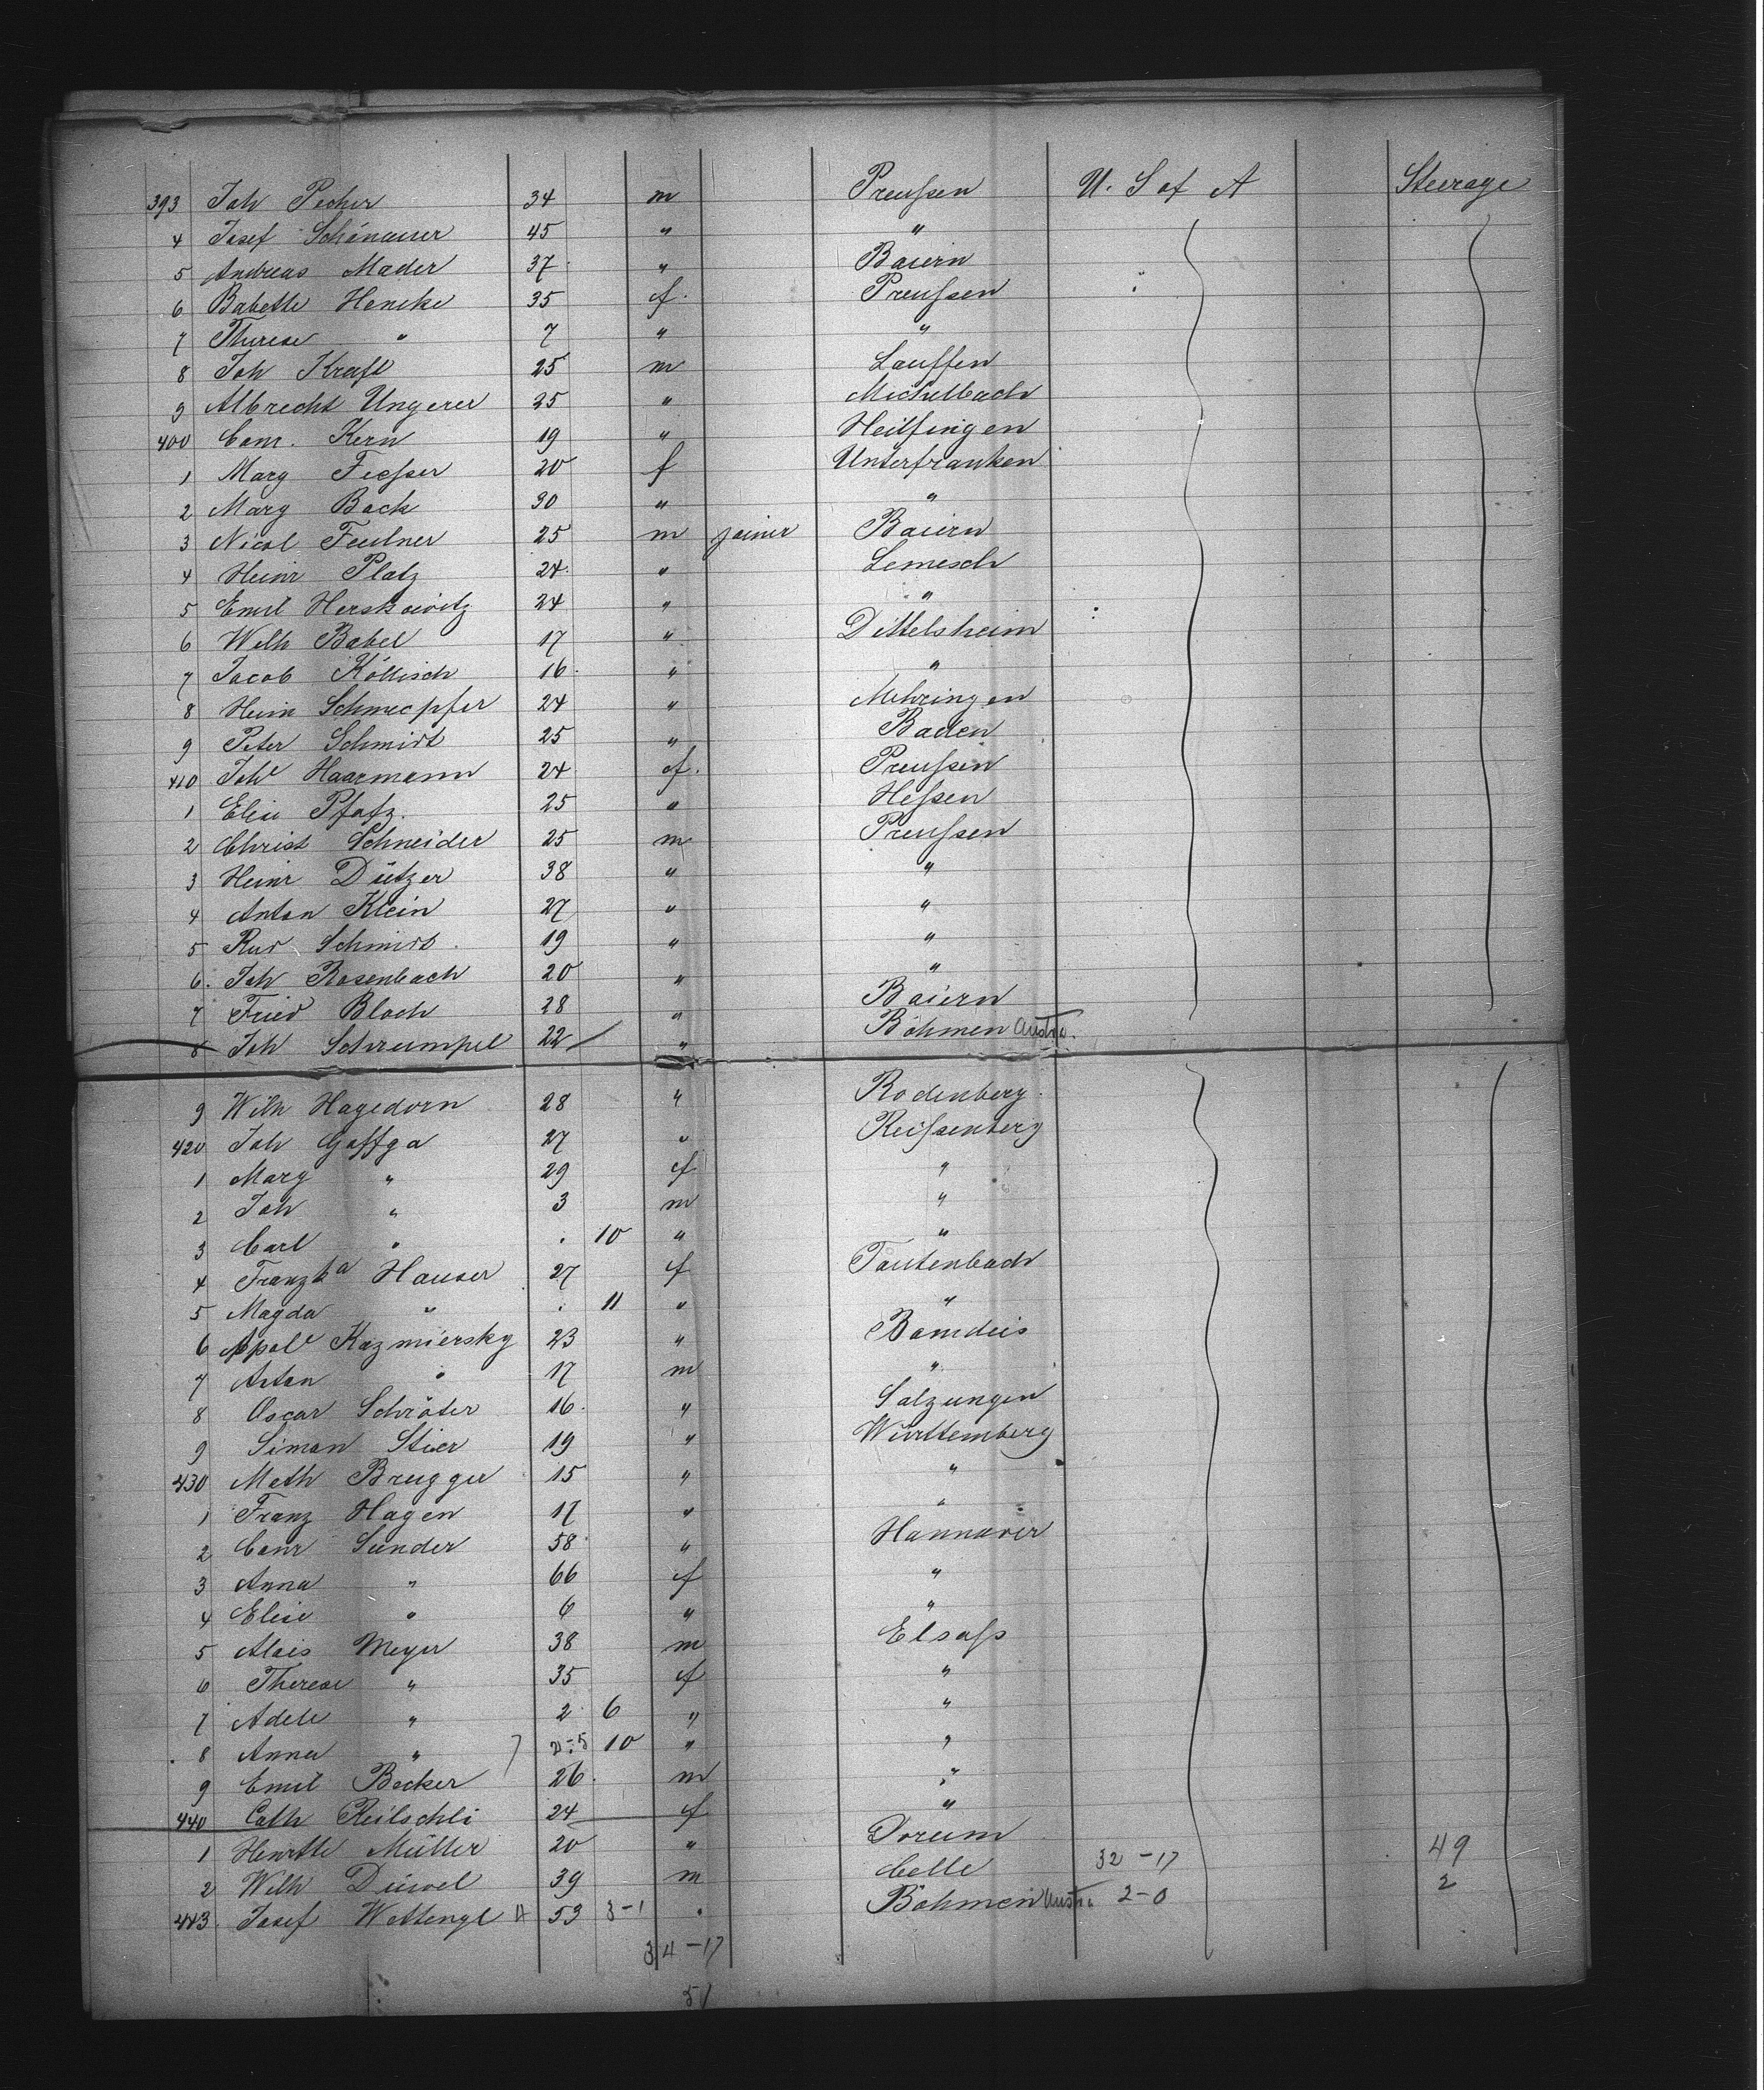 393 Joh Pecher 34 m Preußen U. S of A Steerage
4 Josef Schönauer 45 " "
5 Andreas Mader 37 " Baiern
6 Babette Hencke 35 f. Preußen
7 Therese " 7 " "
8 Joh Kraft 25 m Lauffen
9 Albrecht Ungerer 25 " Michelbach
400 Conr. Kern 19 " Heilfingen
1 Marg Fiesser 20 f Unterfranken
2 Marg Back 30 " "
3 Nicol Feulner 25 m joiner Baiern
4 Heinr Platz 24 " Lemesch
5 Emil Herskowitz 24 " "
6 Wilh Babel 17 " Dittelsheim
7 Jacob Köllisch 16 " "
8 Heinr Schmeopfer 24 " Mehringen
9 Peter Schmidt 25 " Baden
410 Johe Haarmann 24 f. Preußen
1 Elise Pfatz. 25 " Heßen
2 Christ Schneider 25 m Preußen
3 Heinr Dützer 38 " "
4 Anton Klein 27 " "
5 Rud Schmidt 19 " "
6. Joh Rosenbach 20 " "
7 Fried Bloch 28 " Baiern
8 Joh Schrumpel 22 " Böhmen Austria.
9 Wilh Hagedorn 28 " Rodenberg
420 Joh Gaffga 27 " Reißenberg
1 Marg " 29 f "
2 Joh " 3 m "
3 Carl " . 10 " "
4 Franzka Hauser 27 f Tautenbach
5 Magda " . 11 " "
6 Apole Kazmiersky 23 " Bomdeis
7 Anton " 17 m "
8 Oscar Schröter 16 " Salzungen
9 Simon Stier 19 " Württemberg
430 Math Brugger 15 " "
1 Franz Hagen 17 " "
2 Conr Sünder 58 " Hannover
3 Anna " 66 f "
4 Elise " 6 " "
5 Alois Meyer 38 m Elsaß
6 Therese " 35 f "
7 Adele " 2 6 " "
8 Anna " 10 " "
9 Emil Becker 26 m "
440 Cath Reilschli 24 f "
1 Henrtte Müller 20 " Dorum 49
2 Wilh Düwel 39 m Celle 32-17 2
443 Josef Wettengl 53 3-1 " Böhmen Austria 2-0
34-17
51